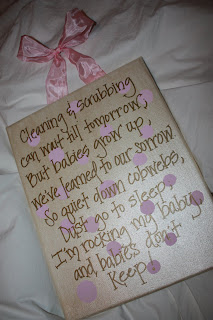 Cleaning & scrubbing
can wait till tomorrow,
But babies grow up,
we've learned to our sorrow.
So quiet down cobwebs,
Dust go to sleep,
I'm rocking my baby
and babies don't
Keep!